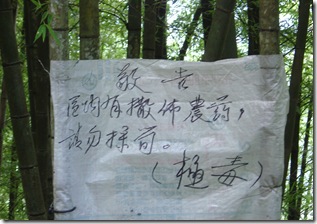 敬告
區內有撒佈農药,
請勿採荀。
(極毒)